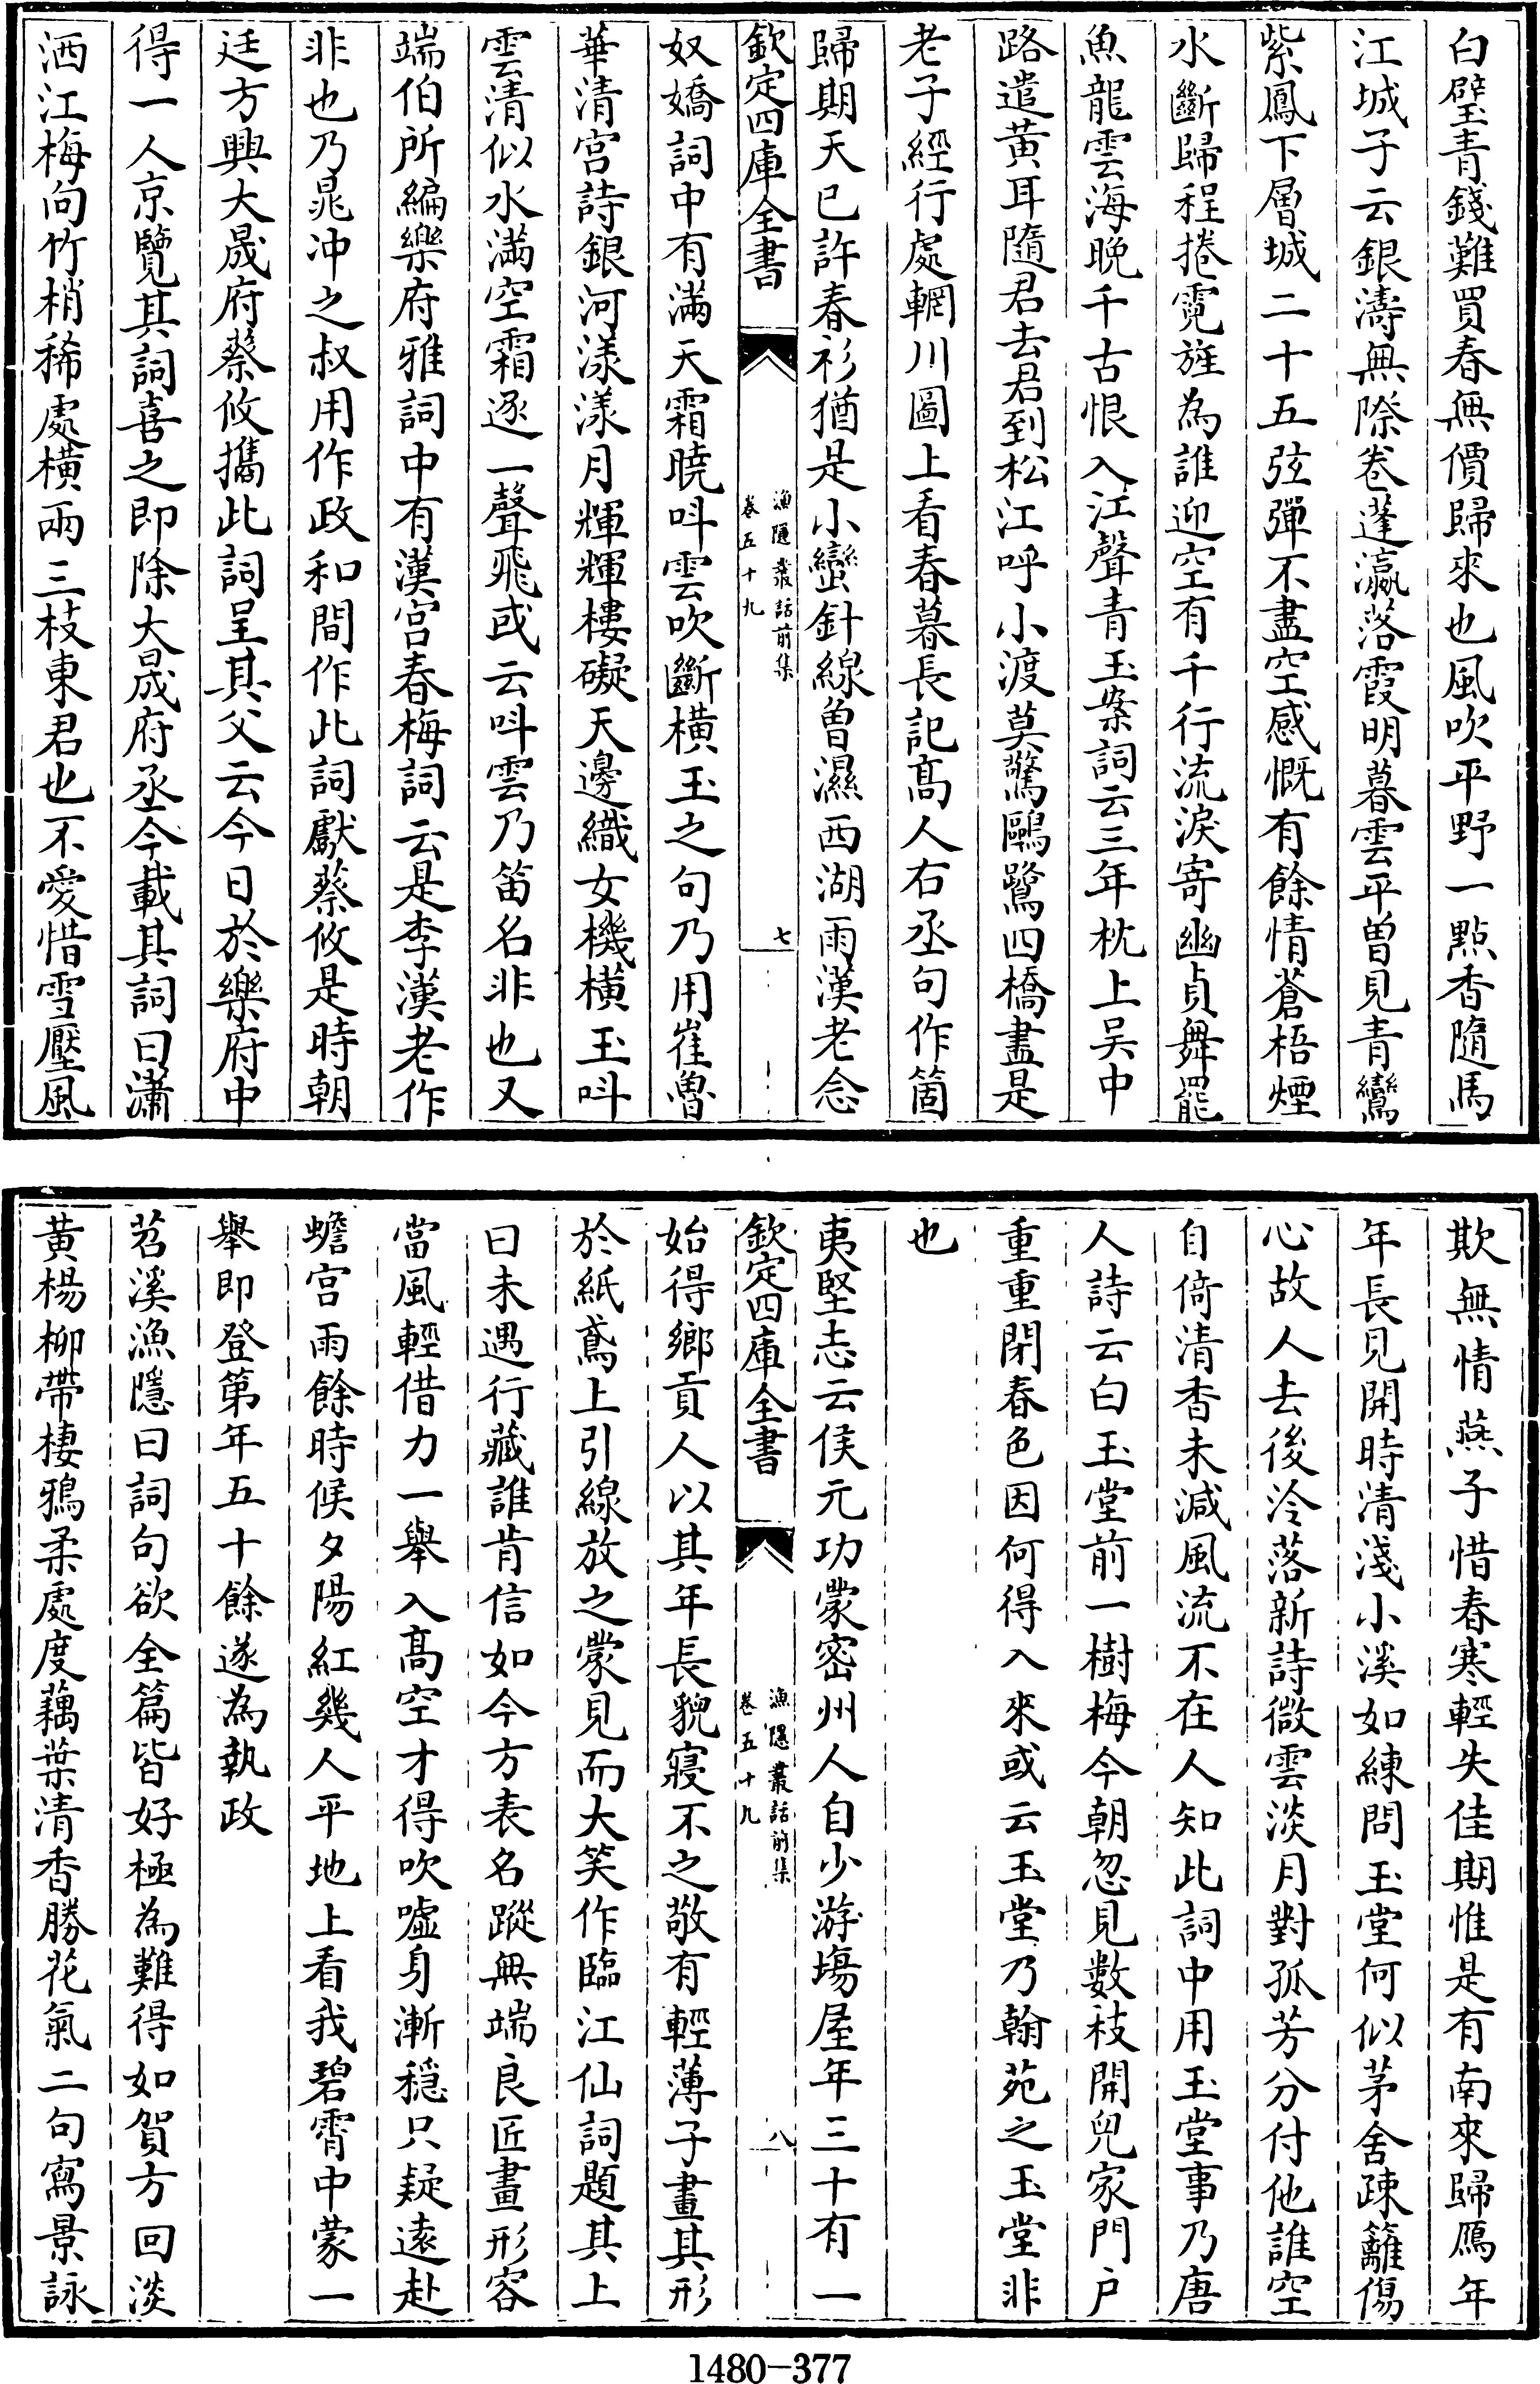 白璧青錢難買春無價歸來也風吹平野一㸃香隨馬
江城子云銀濤無際卷蓬瀛落霞明暮雲平曾見青鸞
紫鳳下層城二十五弦彈不盡空感慨有餘情蒼梧煙
水斷歸程捲霓旌為誰迎空有千行流淚寄幽貞舞罷
魚龍雲海晚千古恨入江聲青玉案詞云三年枕上吳中
路遣黄耳隨君去君到松江呼小渡莫驚鷗鷺四橋盡是
老子經行處輞川圖上看春暮長記髙人右丞句作箇
歸期天已許春衫猶是小蠻針線曾濕西湖雨漢老念
欽定四庫全書
漁隱叢話前集
卷五十九
七
奴嬌詞中有滿天霜曉呌雲吹斷橫玉之句乃用崔魯
華清宫詩銀河漾漾月輝輝樓礙天邊織女機横玉呌
雲清似水滿空霜逐一聲飛或云呌雲乃笛名非也又
端伯所編樂府雅詞中有漢宫春梅詞云是李漢老作
非也乃晁冲之叔用作政和間作此詞獻蔡攸是時朝
廷方興大晟府蔡攸攜此詞呈其父云今日於樂府中
得一人京覽其詞喜之即除大晟府丞今載其詞曰瀟
洒江梅向竹梢稀處横兩三枝東君也不愛惜雪壓風
欺無情燕子惜春寒輕失佳期惟是有南來歸鴈年
年長見開時清淺小溪如練問玉堂何似茅舍疎籬傷
心故人去後冷落新詩微雲淡月對孤芳分付他誰空
自倚清香未減風流不在人知此詞中用玉堂事乃唐
人詩云白玉堂前一樹梅今朝忽見數枝開兒家門户
重重閉春色因何得入來或云玉堂乃翰苑之玉堂非
也
夷堅志云侯元功蒙密州人自少游塲屋年三十有一
欽定四庫全書
漁隱叢話前集
卷五十九
八
始得鄉貢人以其年長貌寢不之敬有輕薄子畫其形
於紙鳶上引線放之蒙見而大笑作臨江仙詞題其上
曰未遇行藏誰肯信如今方表名蹤無端良匠畫形容
當風輕借力一舉入髙空才得吹噓身漸穏只疑遠赴
蟾宫雨餘時候夕陽紅幾人平地上看我碧霄中蒙一
舉即登第年五十餘遂為執政
苕溪漁隱曰詞句欲全篇皆好極為難得如賀方回淡
黄楊柳帶棲鴉柔處度藕葉清香勝花氣二句寫景詠
1480-377